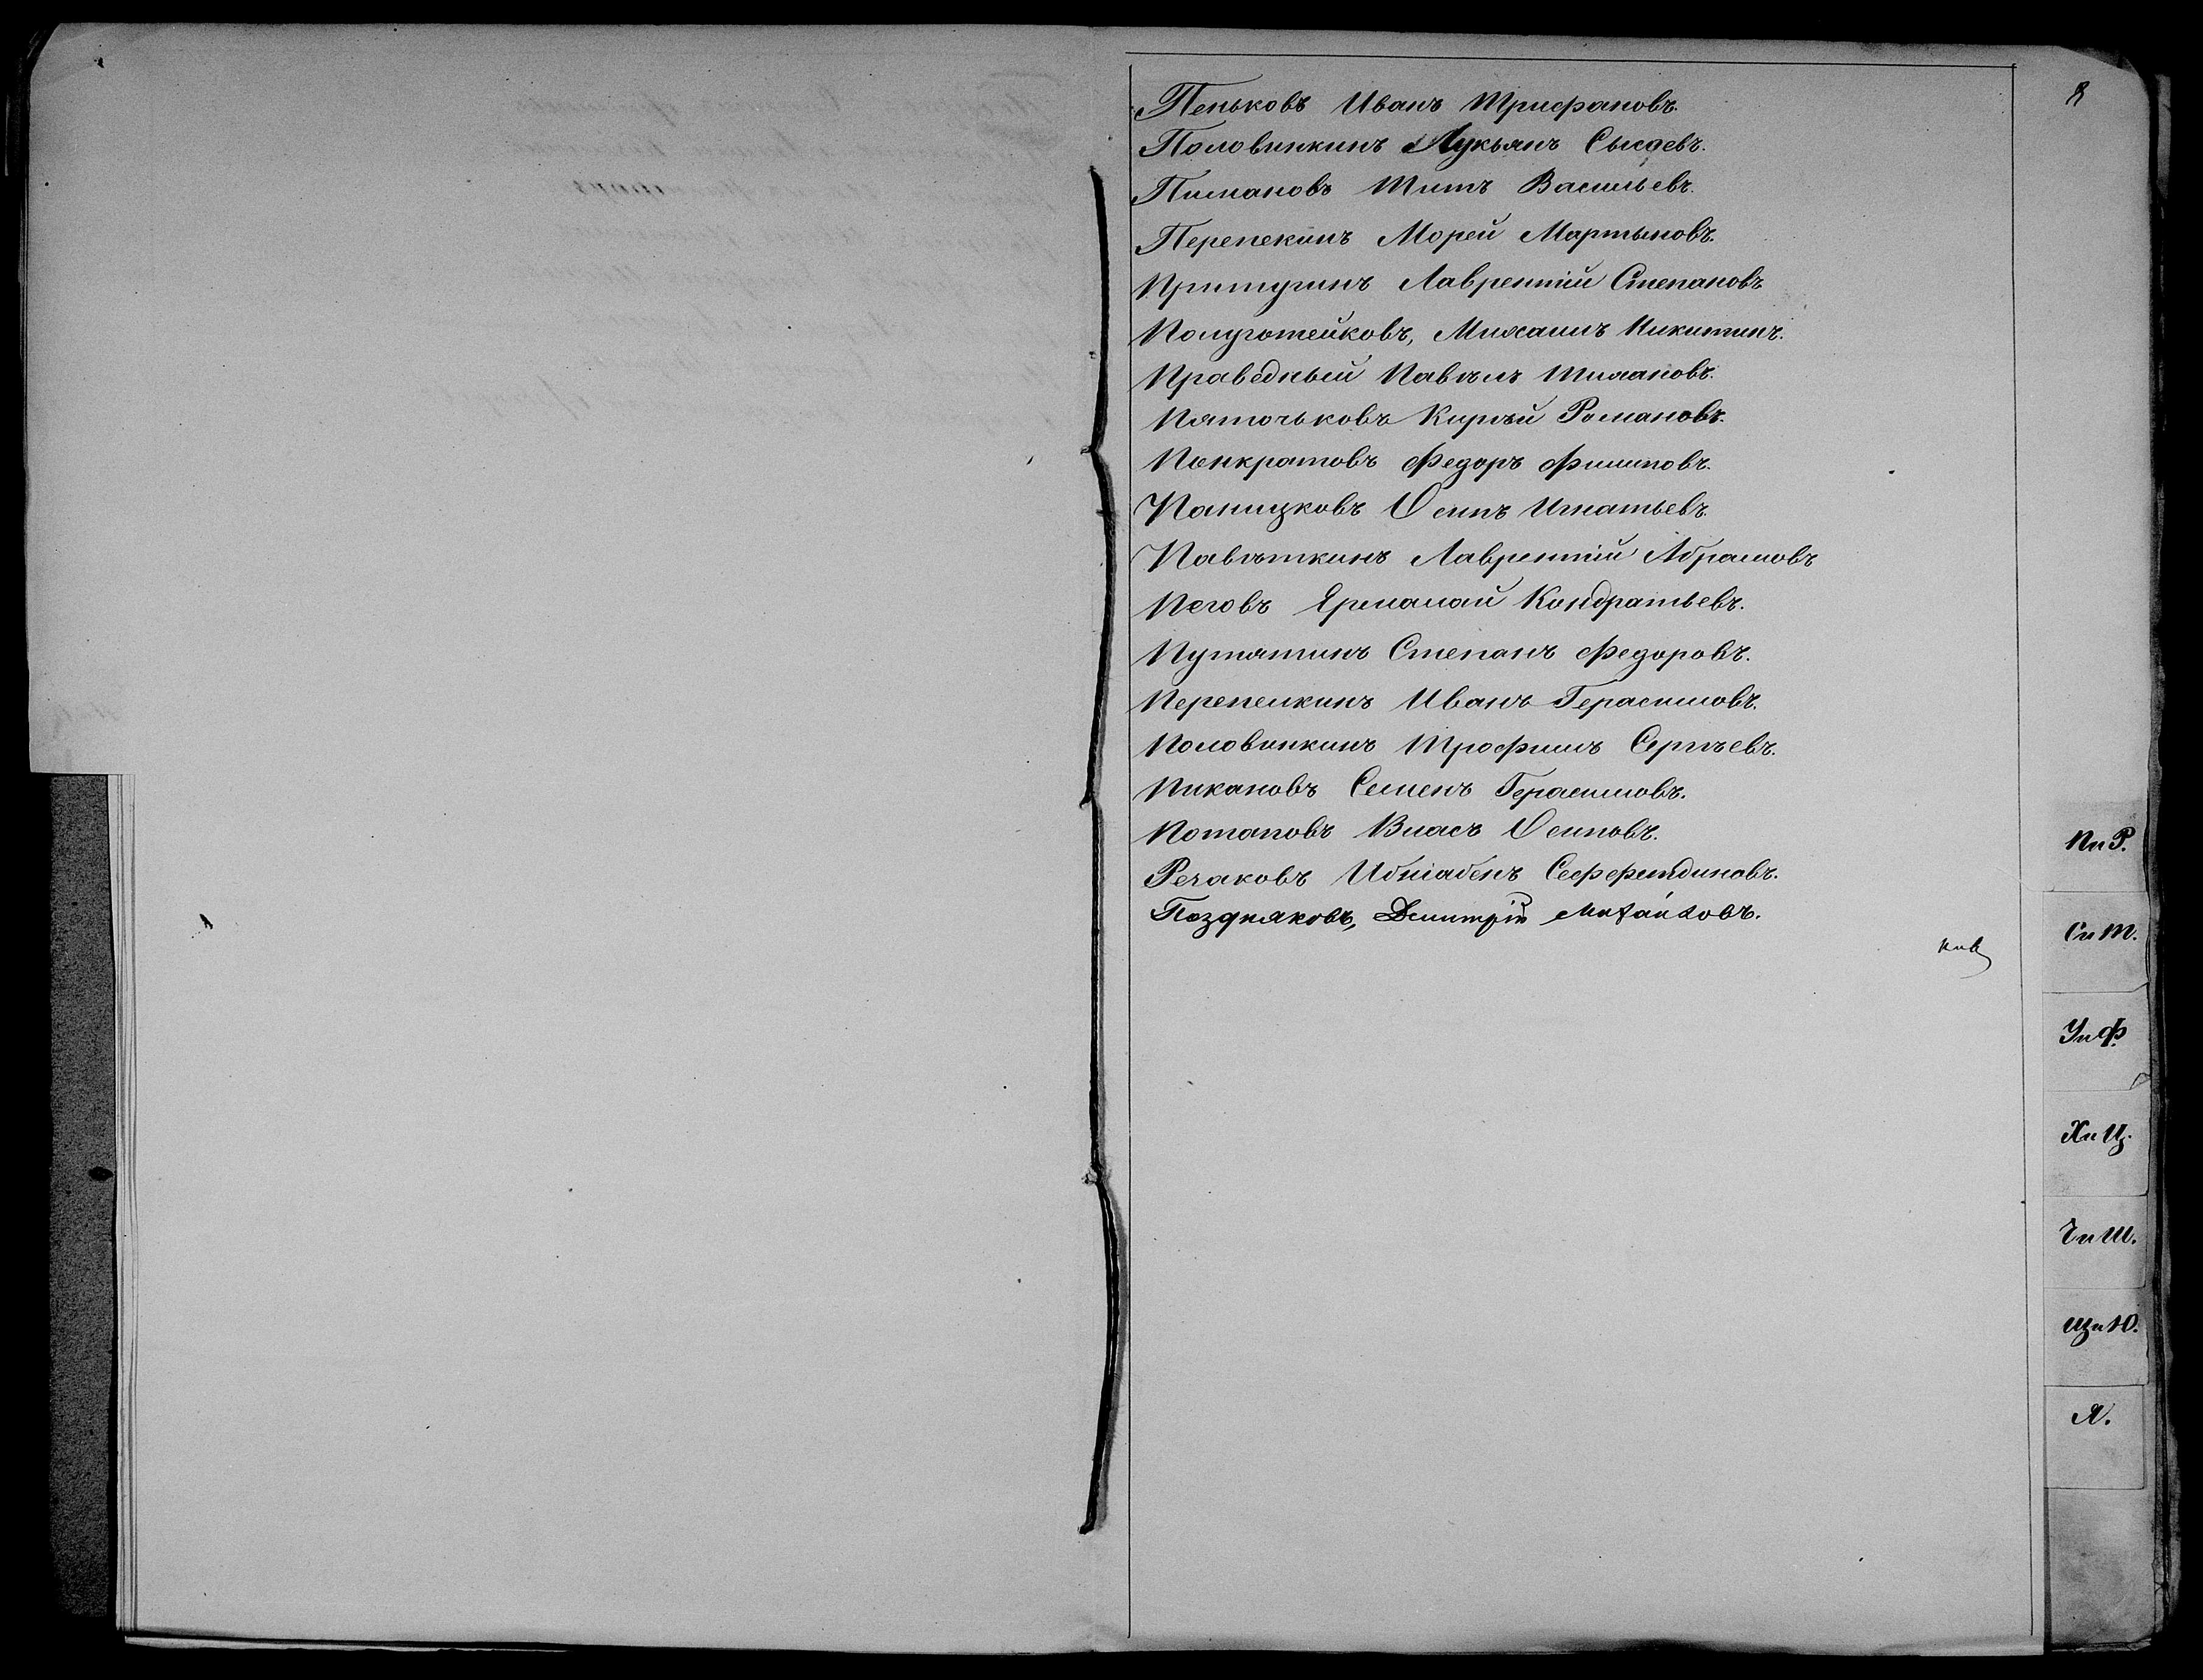 8
Пеньковъ Иванъ Трифановъ.
Половинкинъ Лукьянъ Сысоевъ.
Пимановъ Титъ Васильевъ.
Перепекинъ Морей Мартыновъ.
Притугинъ Лаврентій Степановъ
Полуротейковъ, Михаилъ Никитинъ.
Праведный Павелъ Тихановъ.
Пяточьковъ Кирѣй Романовъ.
Понкратовъ Федоръ Филиповъ.
Паницковъ Осипъ Игнатьевъ.
Павлѣткинъ Лаврентій Абрамовъ
Пеговъ Ярмалай Кондратьевъ.
Путятинъ Степанъ Федоровъ.
Перепелкинъ Иванъ Герасимовъ.
Половинкинъ Трофимъ Сергѣевъ.
Пикановъ Семенъ Герасимовъ.
Потаповъ Власъ Осиповъ.
Речаковъ
Поздняковъ, Дмитрій Михайловъ.
П и Р.
С и Т.
У и Ф.
Х и Ц.
Ч и Ш.
Щ и Ю.
Я.